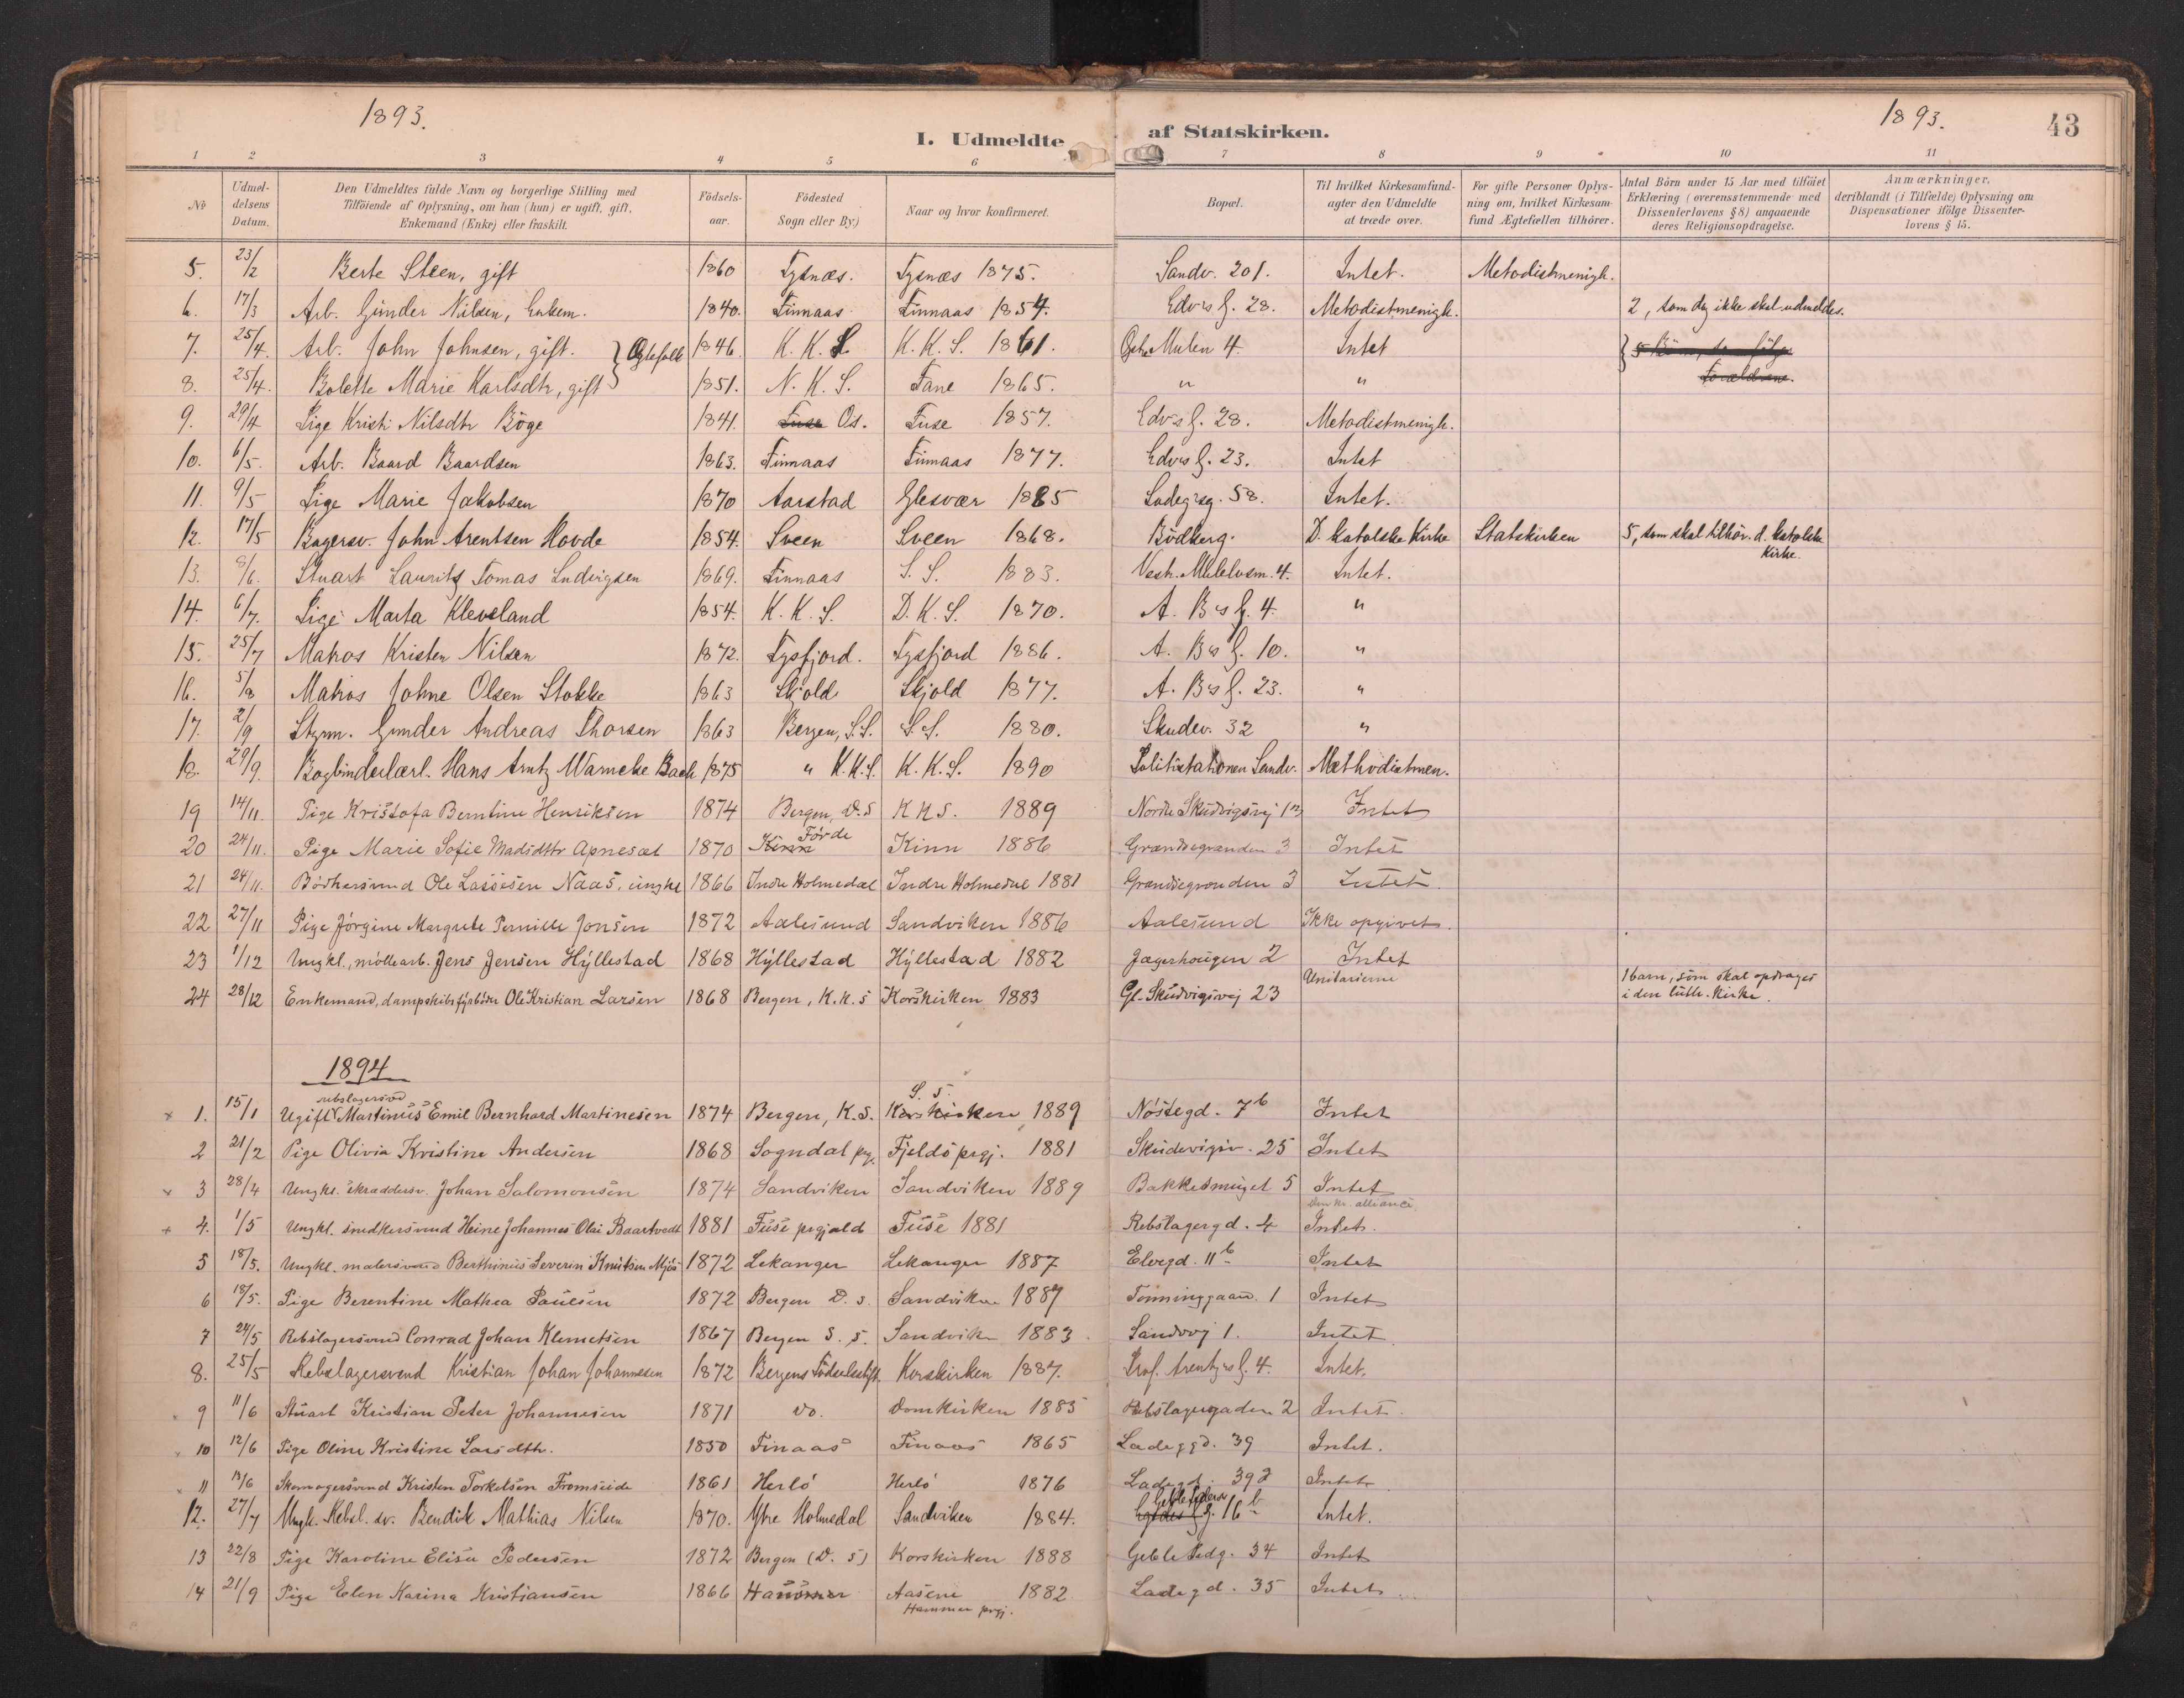 1893.
1893.
43
I. Udmeldte af Statskirken.
1 2 3 4 5 6 7 8 9 10 11
No
Udmeldelsens Datum.
Den Udmeldtes fulde Navn og borgerlige Stilling med Tilföiende af Oplysning, om han (hun) er ugift, gift, Enkemand (Enke) eller fraskilt.
Födselsaar.
Födested Sogn eller By.)
Naar og hvor konfirmeret.
Bopæl.
Til hvilket Kirkesamfund agter den Udmeldte at træde over.
For gifte Personer Oplysning om, hvilket Kirkesamfund Ægtefællen tilhörer.
Antal Börn under 15 Aar med tilföiet Erklæring (overensstemmende med Dissenterlovens § 8) angaaende deres Religionsopdragelse.
Anmærkninger, deriblandt (i Tilfælde) Oplysning om Dispensationer ifölge Dissenterlovens § 15.
5. 23/2 Berte Steen, gift 1860 Tysnæs. Tysnæs 1875. Sandv. 201. Intet. Metodistmenigh.
6. 17/3 Arb. Gunder Nilsen, Enkem. 1840. Finnaas Finnaas 1854. Edvs g. 28. Metodistmenigh. 2, som dog ikke skal udmeldes.
7. 25/4. Arb. John Johnsen, gift. } Egtefolk 1846. K. K. S. K. K. S. 1861. Mulen 4. Intet } 5 Börn, som fölge
8. 25/4. Bolette Marie Karlsdtr, gift 1851. N. K. S. Fane 1865. " " Forældrene.
9. 29/4 Pige Kristi Nilsdtr Böge 1841. Fuse Os. Fuse 1857. Edvs g. 28. Metodistmenigh.
10. 6/5. Arb. Baard Baardsen 1863. Finnaas Finnaas 1877. Edvs g. 23. Intet
11. 9/5 Pige Marie Jakobsen 1870 Aarstad Glesvær 1885 Ladegsg. 58. Intet.
12. 17/5 Bagersv. John Arentsen Hovde 1854. Sveen Sveen 1868. Bödkerg. D. katolske Kirke Statskirken 5, som skal tilhör. d. katolske Kirke.
13. 8/6. Stuart Laurits Tomas Ludvigsen 1869. Finnaas S. S. 1883. Vestr. Mulelvsm. 4. Intet.
14. 6/7. Pige Marta Kleveland 1854. K. K. S. D. K. S. 1870. A. Bs g. 4. "
15. 25/7 Matros Kristen Nilsen 1872. Tysfjord. Tysfjord 1886. A. Bs g. 10. "
16. 5/8 Matros Johne Olsen Stokke 1863 Skjold Skjold 1877. A. Bs g. 23. "
17. 2/9 Styrm. Gunder Andreas Thorsen 1863 Bergen, S.S. S.S. 1880. Skudev. 32 "
18. 29/9. Bogbinderlærl. Hans Arntz Warncke Bach 1875 " K.K.S. K.K.S. 1890 Politistationen Sandv. Methodistmen.
19 14/11. Pige Kristofa Berntine Henriksen 1874 Bergen, D.S K K S. 1889 Nordre Skudvigsvej Intet
20 24/11. Pige Marie Sofie Madsdttr Apnesæt 1870 Kinn Förde Kinn 1886 Grændsegrænden 3 Intet
21 24/11. Bödkersvend Ole Lassesen Naas, ungkl 1866 Indre Holmedal Indre Holmedal 1881 Grændsegrænden 3 Intet.
22 27/11 Pige Jörgine Margrete Pernille Jonsen 1872 Aalesund Sandviken 1886 Aalesund Ikke opgivet.
23 1/12 Ungkl., möllearb. Jens Jensen Hyllestad 1868 Hyllestad Hyllestad 1882 Jægerhougen 2 Intet
24 28/12 Enkemand, dampskibsfyrböder Ole Kristian Larsen 1868 Bergen, K.K.S Korskirken 1883 Gl. Skudvigsvej 23 Unitarierne 1 barn, som skal opdrages i den luth. kirke.
1894
x 1. 15/1 Ugift rebslagersvd Martinus Emil Bernhard Martinesen 1874 Bergen, K.S. Korskirken S. S. 1889 Nöstegd. 7b Intet
2 21/2 Pige Olivia Kristine Andersen 1868 Sogndal prg. Fjeldö prgj. 1881 Skudevigsv. 25 Intet
x 3 28/4 Ungkl. skraddersv. Johan Salomonsen 1874 Sandviken Sandviken 1889 Bakkesmuget 5 Intet
x 4. 1/5 Ungkl. snedkersvend Heine Johannes Olai Baartvedt 1881 Fuse prgjæld Fuse 1881 Rebslagergd. 4 Intet. Den kr. alliance.
5 18/5. Ungkl. malersvend Berthinius Severin Knutsen Mjös 1872 Lekanger Lekanger 1887 Elvegd. 11b Intet
6 18/5. Pige Berentine Mathea Paulsen 1872 Bergen D. s. Sandviken 1887 Tonninggaard. 1 Intet
7 24/5 Rebslagersvend Conrad Johan Klemetsen 1867 Bergen S. S. Sandviken 1883 Sandvvj 1. Intet
8. 25/5 Rebslagersvend Kristian Johan Johannesen 1872 Bergens Födselsstift. Korskirken 1887. Prof. Arentz's g. 4. Intet.
9 11/6 Stuart Kristian Peter Johannesen 1871 do. Domkirken 1885 Rebslagergaden 2 Intet.
10 12/6 Pige Oline Kristine Larsdtr. 1850 Finaas Finaas 1865 Ladeggd. 39 Intet.
11 13/6 Skomagersvend Kristen Torkelsen Fromseide 1861 Herlö Herlö 1876 Ladegd. 39 Intet
12. 27/7 Ungk. Rebsl. sv. Bendik Mathias Nilsen 1870. Ytre Holmedal Sandviken 1884. Geble Peders g. 16b Intet.
13 22/8 Pige Karoline Elise Pedersen 1872 Bergen (D. S) Korskirken 1888 Geble Pedg. 34 Intet
14 21/9 Pige Elen Karina Kristiansen 1866 Aasene Hammer prgj. 1882 Ladegd. 35 Intet